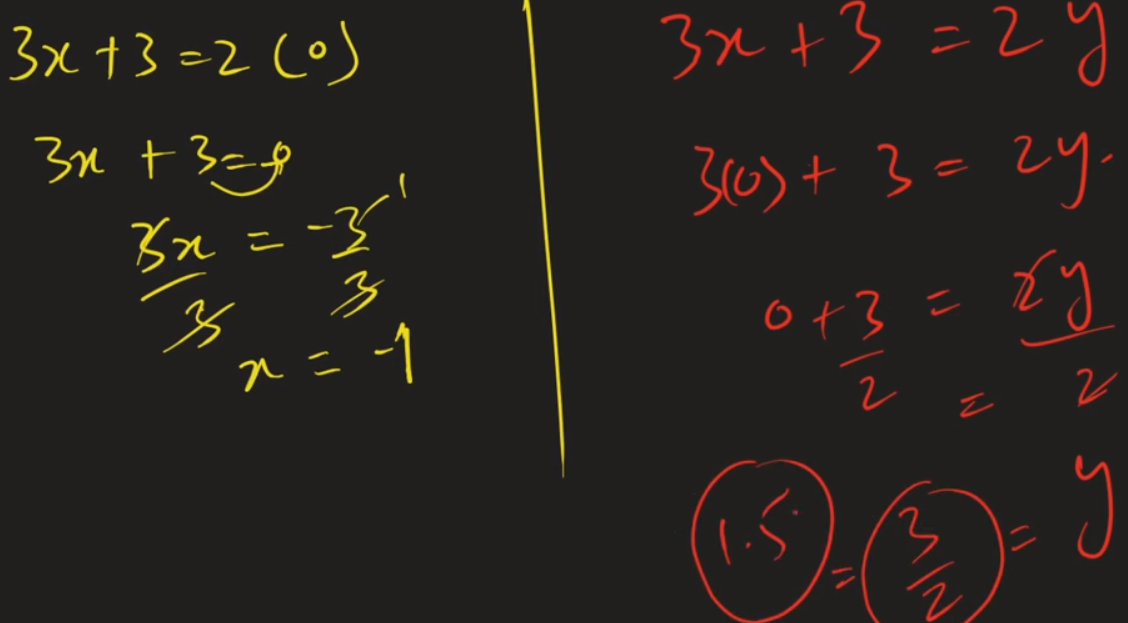 3x + 3 = 2 (0)
3x + 3 = 0
3x/3 = -3/3 1
x = -1
3x + 3 = 2y
3(0) + 3 = 2y.
0 + 3/2 = 2y/2
=
1.5 = 3/2 = y